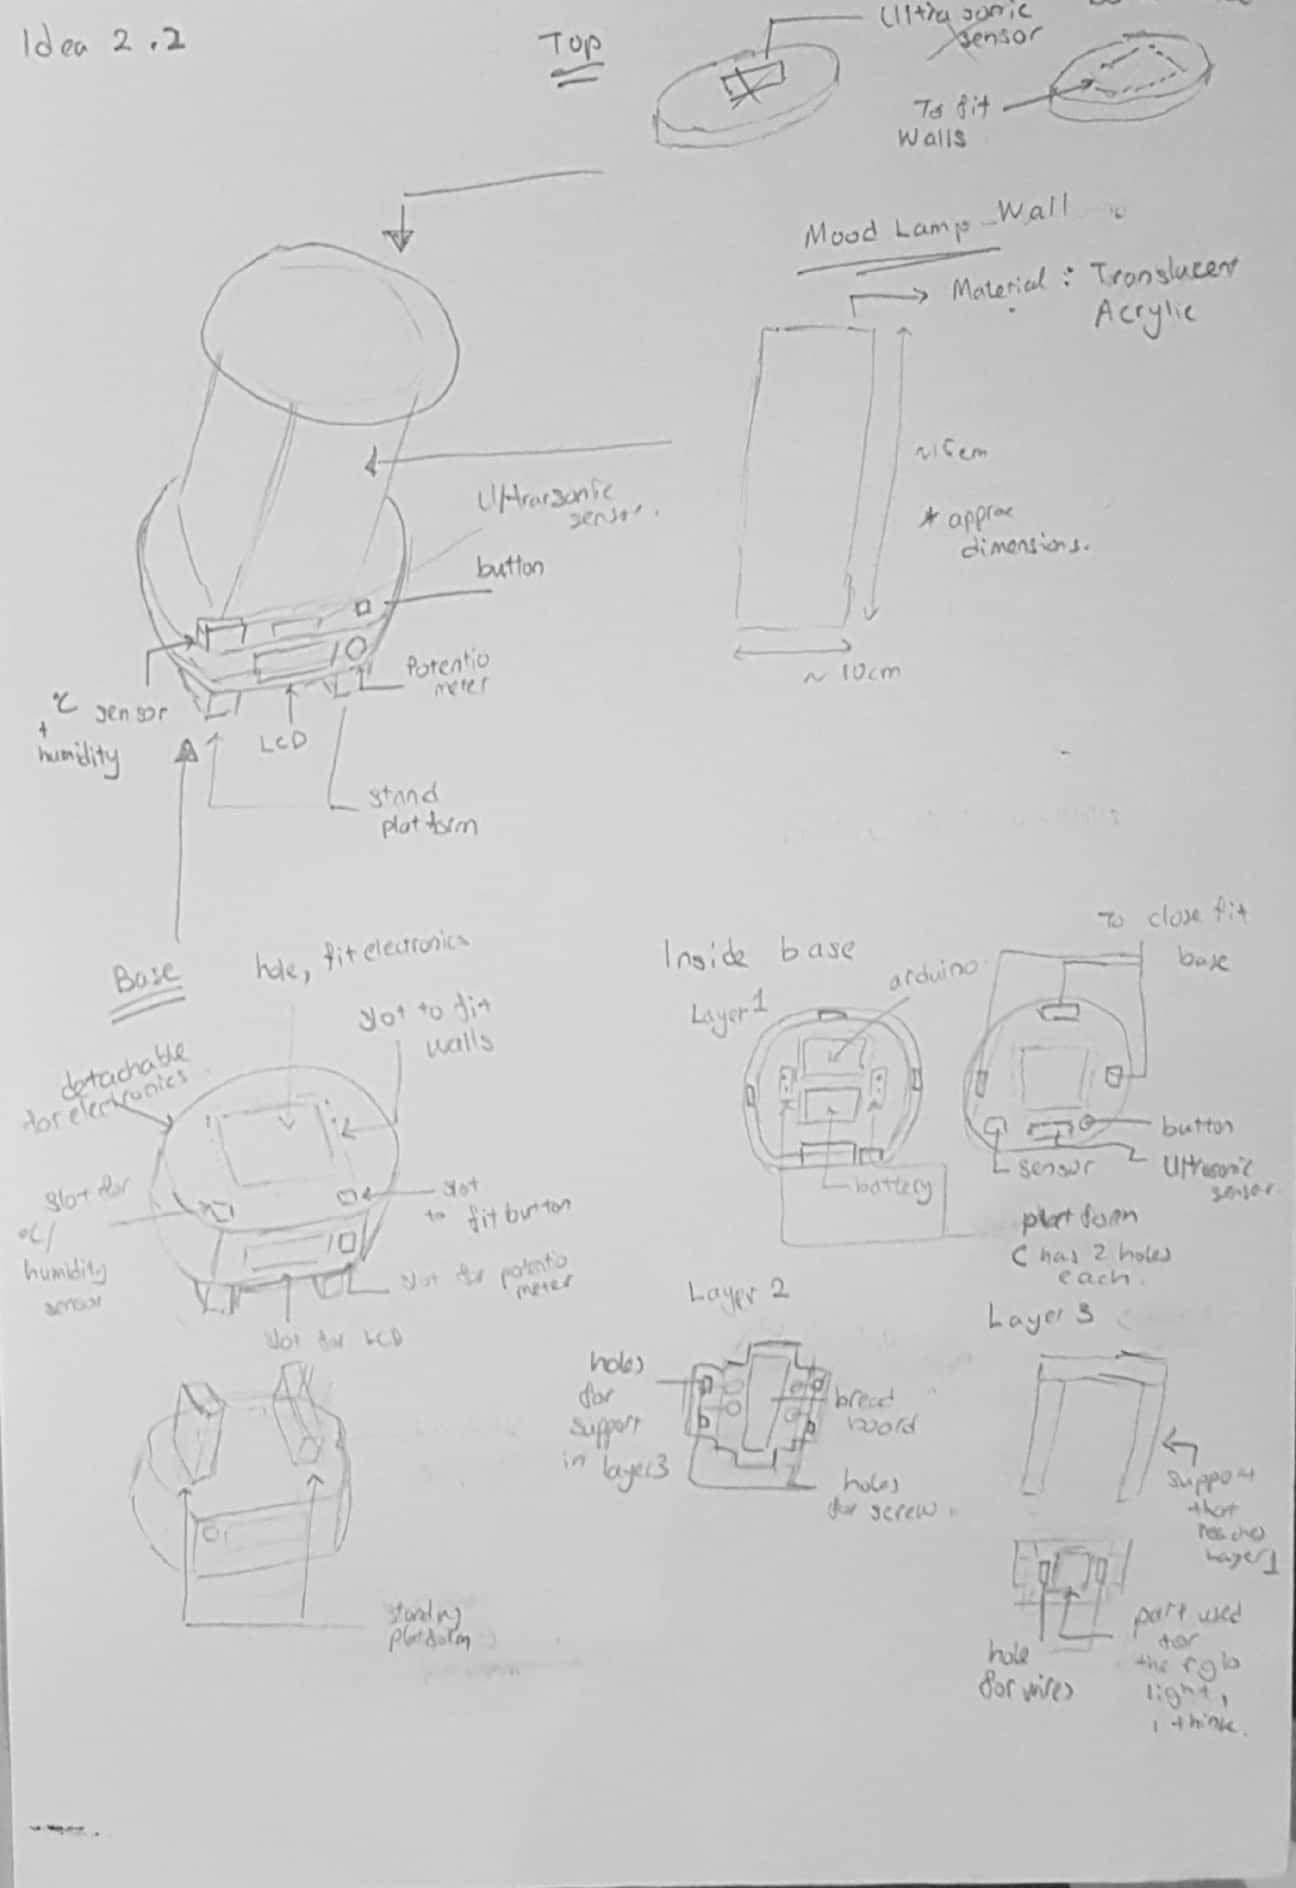 Idea 2.2
Top
Ultra sonic
sensor
To fit
Walls
Mood Lamp Wall
Material : Translucent
Acrylic
* approx
dimensions.
~ 10cm
Ultrarsonic
sensor.
button
Potentio
meter
°C sensor
+
humidity
LCD
stand
platform
Base
hole, fit electronics
slot to fit
walls
detachable
for electronics
slot for
°C/
humidity
sensor
slot
to fit button
slot for potentio
meter
slot for LCD
standing
platform
Inside base
Layer 1
arduino
battery
To close fit
base
button
sensor
Ultrasonic
sensor.
platform
( has 2 holes
each.
Layer 2
holes
for
support
in layer3
bread
board
holes
for screw.
Layer 3
support
that
reaches
layer 1
hole
for wires
part used
for
the rgb
light,
i think.